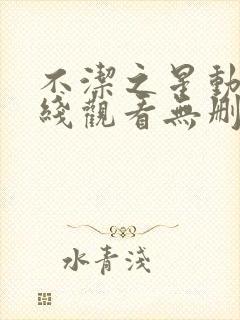 不潔之星動
綫觀看無刪
水青淺